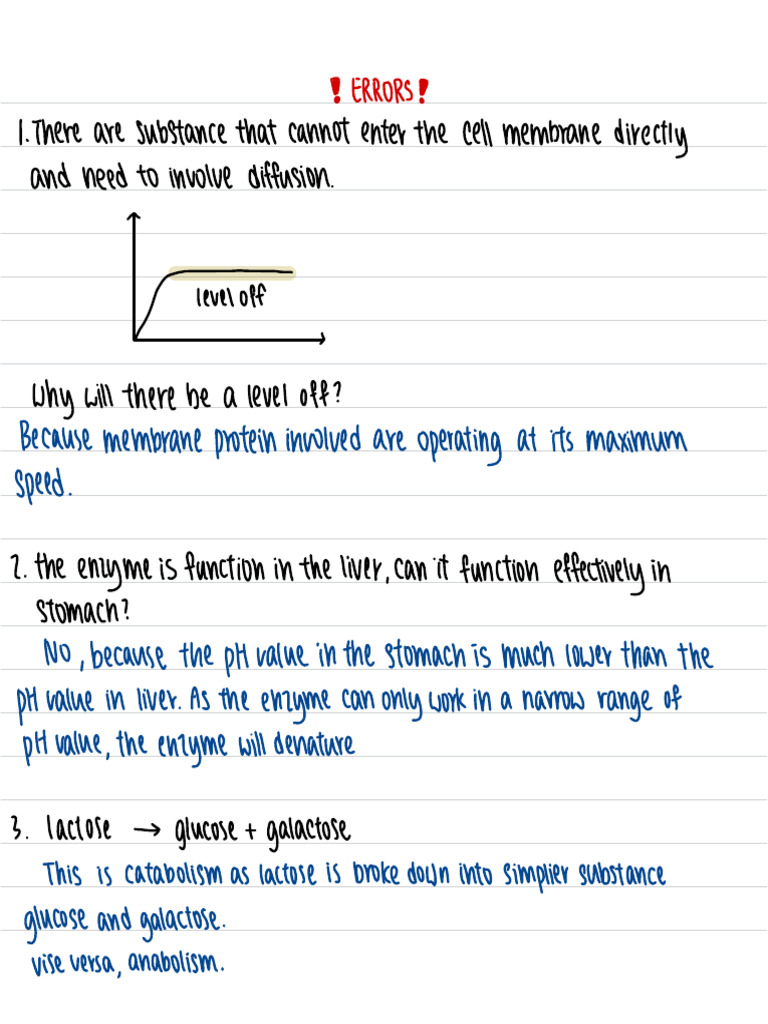 ! ERRORS!
1. There are substance that cannot enter the cell membrane directly
and need to involve diffusion.
level off
Why will there be a level off?
Because membrane protein involved are operating at its maximum
speed.
2. the enzyme is function in the liver, can it function effectively in
stomach?
No, because the pH value in the stomach is much lower than the
pH value in liver. As the enzyme can only work in a narrow range of
pH value, the enzyme will denature
3. lactose → glucose + galactose
This is catabolism as lactose is broke down into simplier substance
glucose and galactose.
vise versa, anabolism.